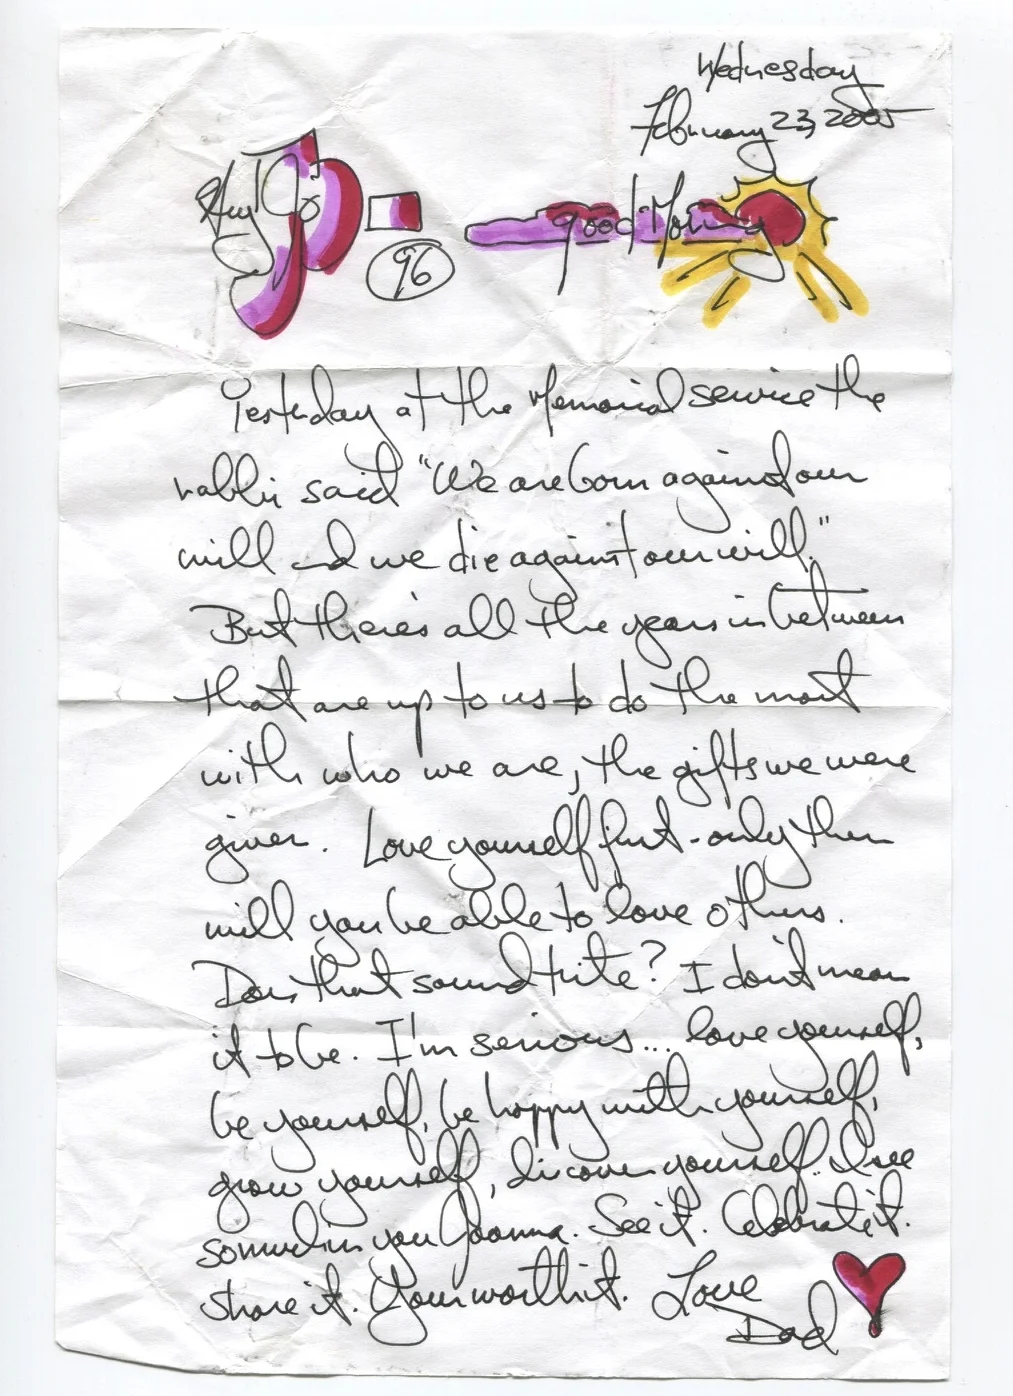 Wednesday
February 23, 2005
Hey Jo
96
good Morning
Yesterday at the Memorial service the
rabbi said "We are born against our
will and we die against our will."
But there's all the years in between
that are up to us to do the most
with who we are, the gifts we were
given. Love yourself first - only then
will you be able to love others.
Does that sound trite? I don't mean
it to be. I'm serious... love yourself,
be yourself, be happy with yourself,
grow yourself, discover yourself. I see
so much in you Joanna. See it. Celebrate it.
share it. Your worth it. Love
Dad